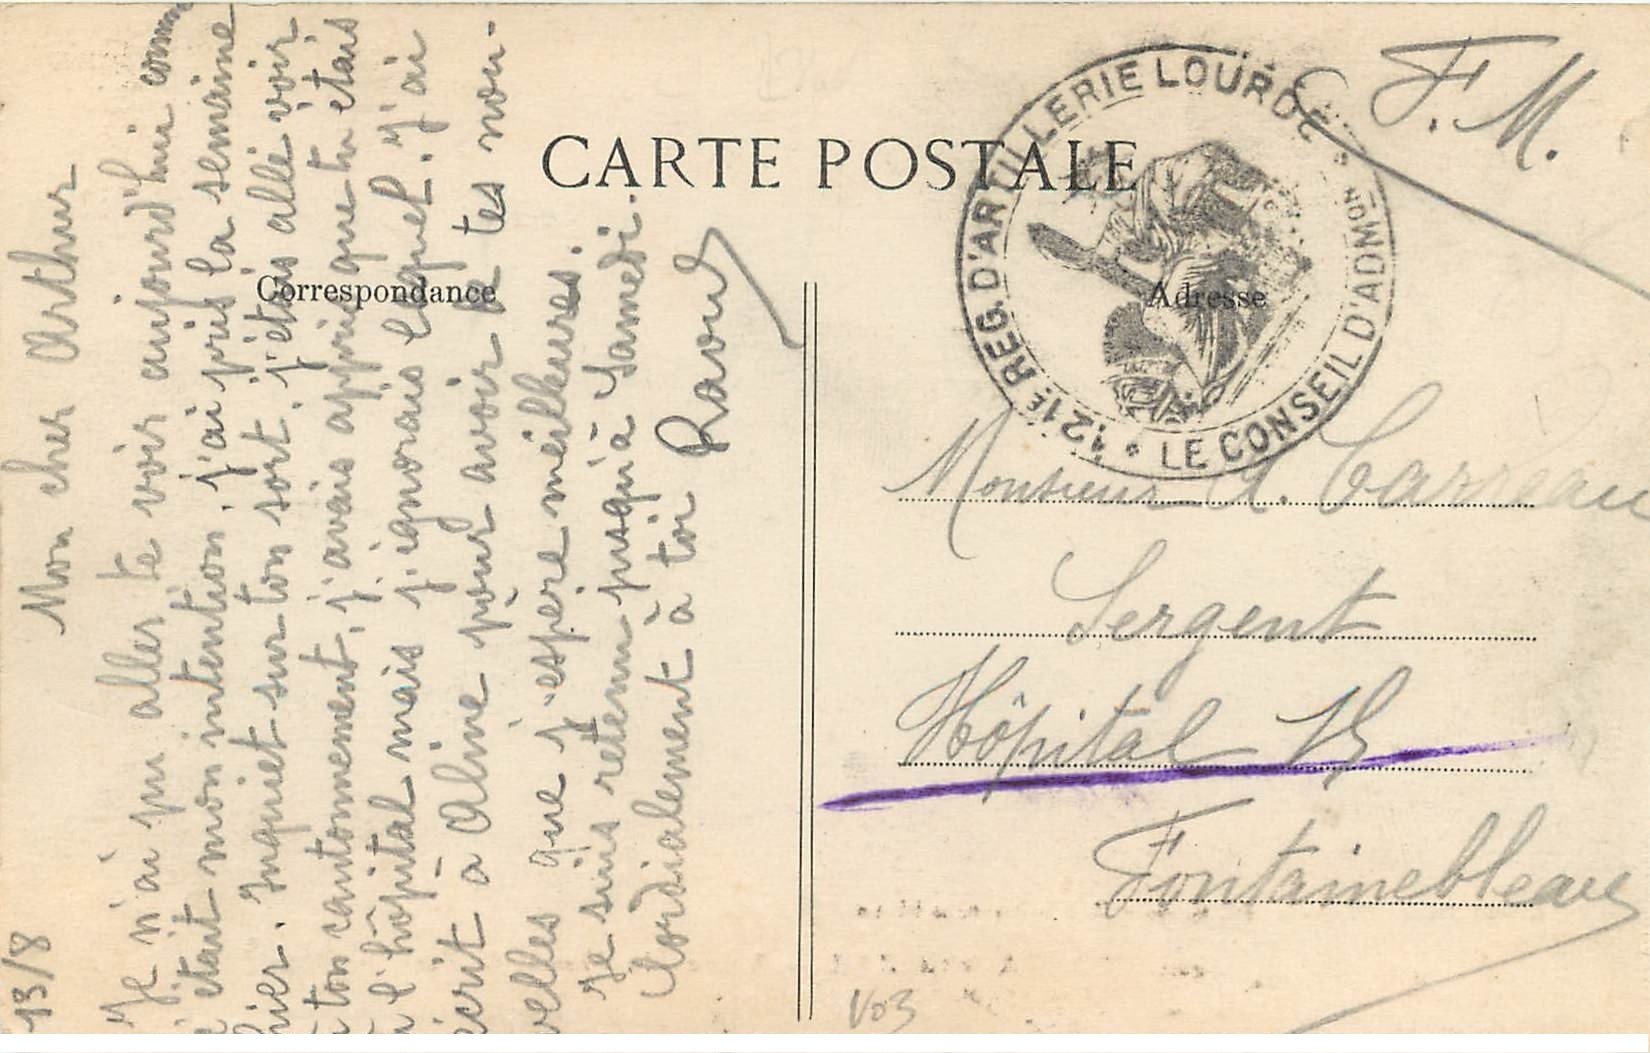 CARTE POSTALE
Correspondance
Adresse
F.M.
121E REG. D'ARTILLERIE LOURDE
LE CONSEIL D'ADMON
13/8
Mon cher Arthur
Je n'ai pu aller te voir aujourd'hui comme
c'était mon intention. j'ai pris la semaine
hier. Inquiet sur ton sort, j'étais allé voir
à ton cantonnement, j'avais appris que tu étais
à l'hôpital mais j'ignorais lequel. J'ai
écrit à Aline pour avoir de tes nou-
velles que j'espère meilleures.
Je suis retenu jusqu'à Samedi.
Cordialement à toi
Raoul
Monsieur A.
Sergent
Hôpital
Fontainebleau
V03